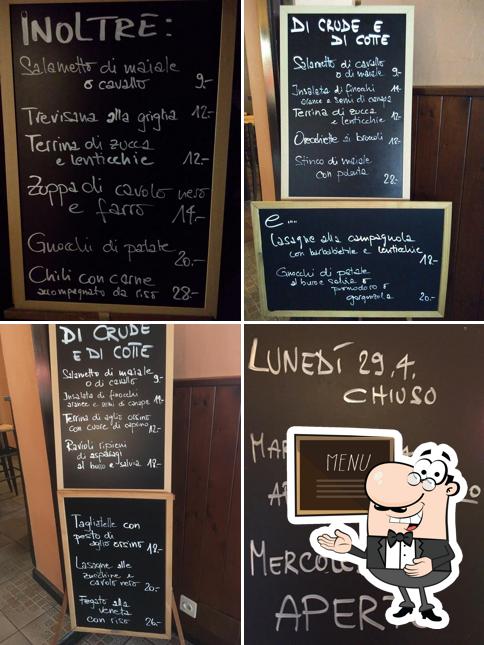 INOLTRE:
Salametto di maiale
o cavallo 9.-
Trevisana alla griglia 12.-
Terrina di zucca
e lenticchie 12.-
Zuppa di cavolo nero
e farro 14.-
Gnocchi di patate
20.-
Chili con carne
accompagnato da riso 28.-
DI CRUDE E
DI COTTE
Salametto di cavallo
o di maiale 9.-
Insalata di finocchi
arance e semi di canapa
Terrina di zucca
e lenticchie 12.-
Orecchiette ai broccoli 18.-
Stinco di maiale
con polenta
28.-
e....
Lasagne alla campagnola
con barbabietole e lenticchie 18.-
Gnocchi di patate
al burro e salvia o
pomodoro o
gorgonzola 20.-
DI CRUDE
E DI COTTE
Salametto di maiale
o di cavallo 9.-
Insalata di finocchi
arance e semi di canapa
Terrina di aglio orsino
con cuore di caprino 12.-
Ravioli ripieni
di asparagi
al burro e salvia 18.-
Tagliatelle con
pesto di
aglio orsino 18.-
Lasagne alle
zucchine e
cavolo nero 20.-
Fegato alla
veneta
con riso 26.-
LUNEDÌ 29.4.
CHIUSO
MAR
MENU
MERCOL
APERT